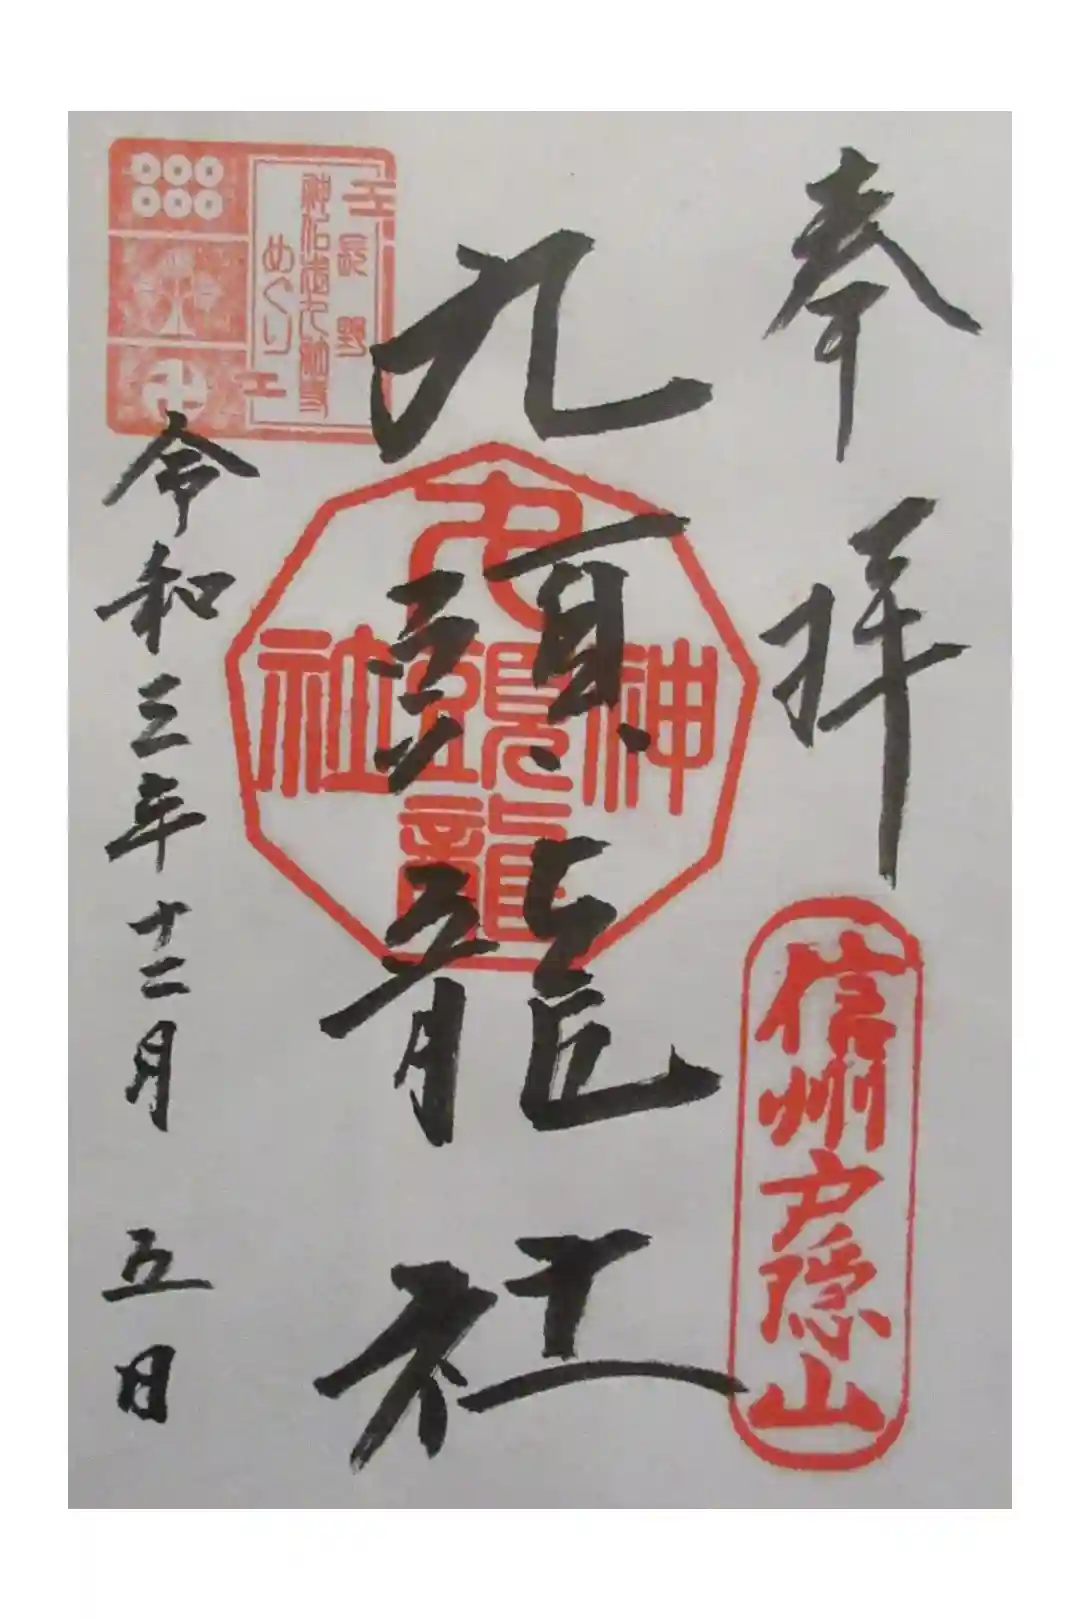 奉拝
信州戸隠山
九頭龍社
九頭龍
神社
長野
めぐり
令和三年十二月 五日